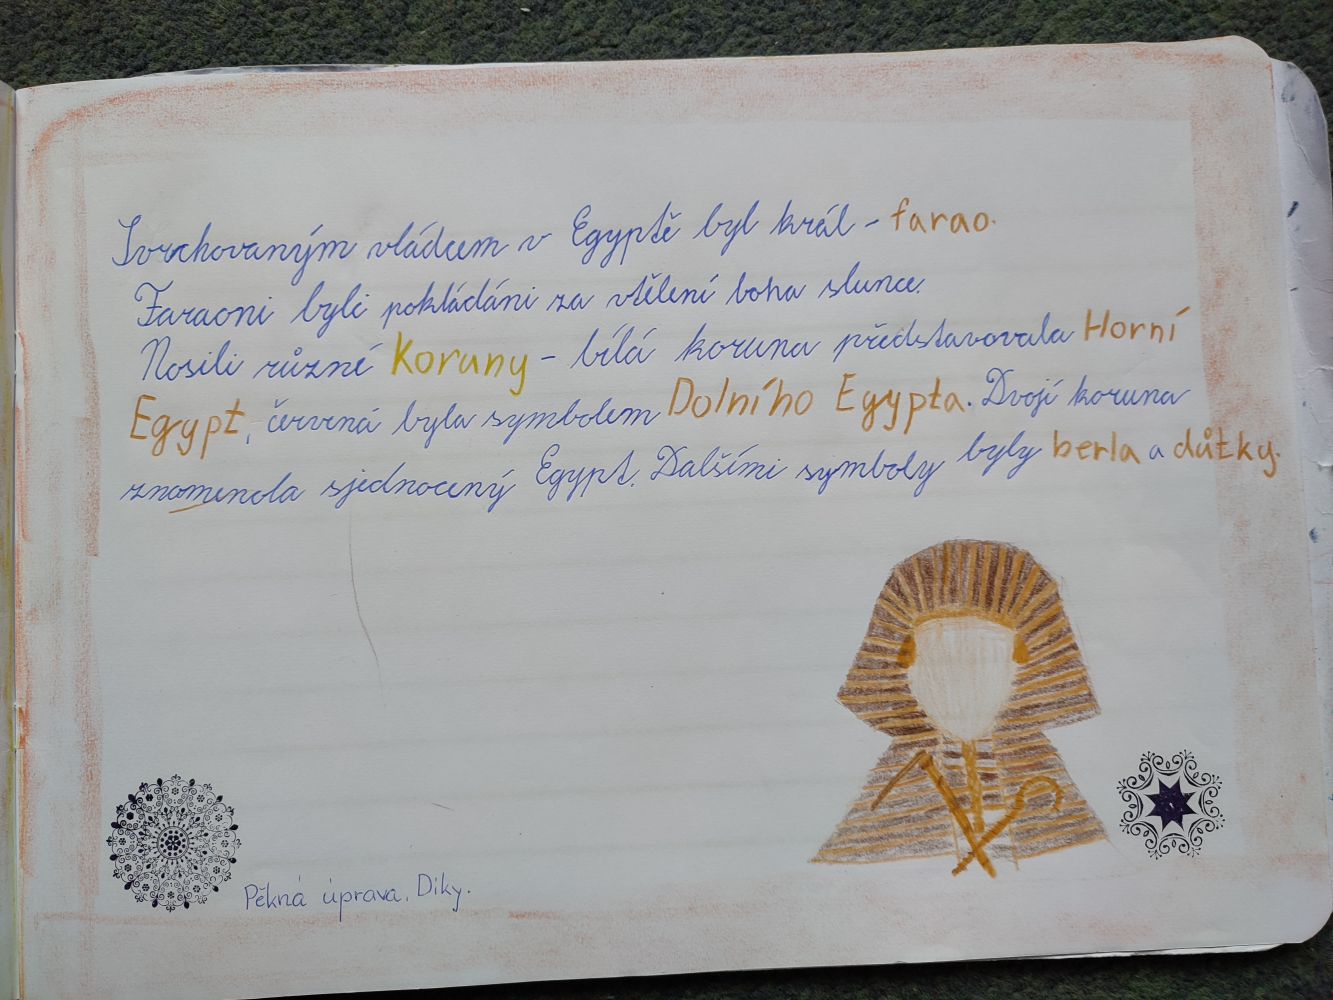 Svrchovaným vládcem v Egyptě byl král - farao.
Faraoni byli pokládáni za vtělení boha slunce.
Nosili různé Koruny - bílá koruna představovala Horní
Egypt, červená byla symbolem Dolního Egypta. Dvojí koruna
znamenala sjednocený Egypt. Dalšími symboly byly berla a důtky.
Pěkná úprava. Díky.